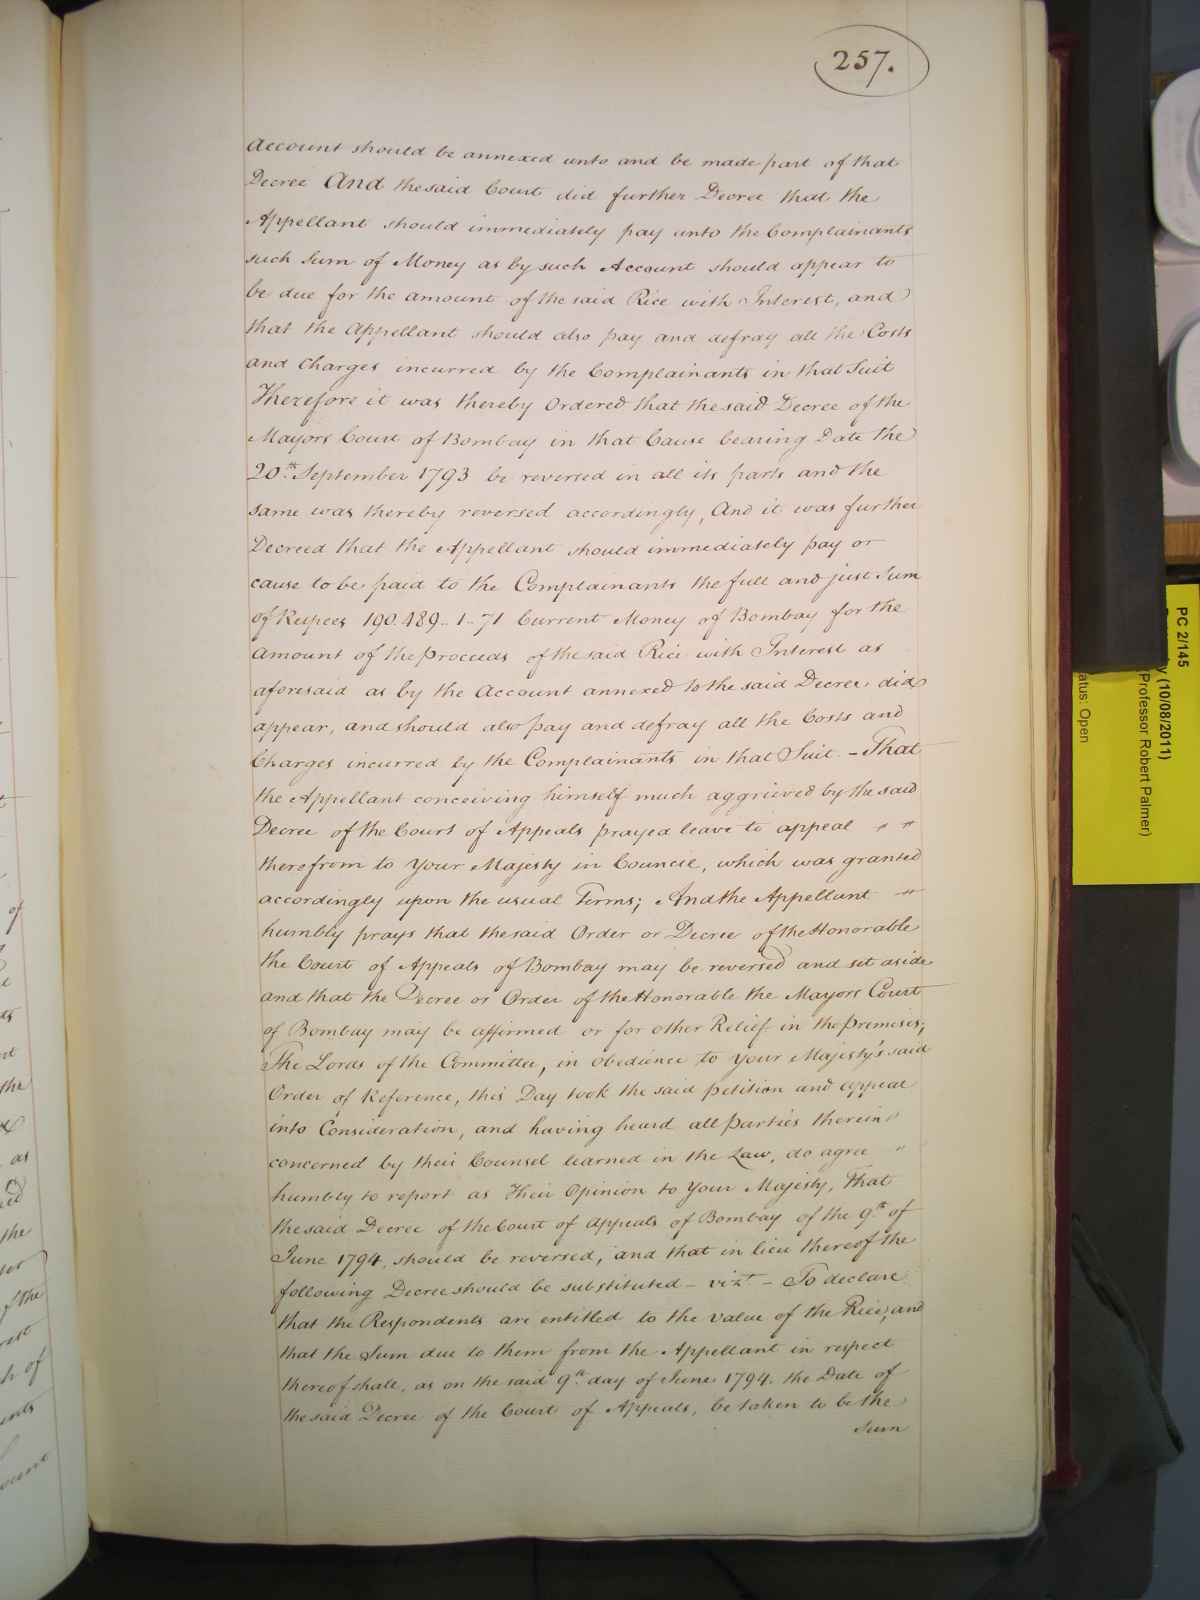 257.
Account should be annexed unto and be made part of that
Decree And the said Court did further Decree that the
Appellant should immediately pay unto the Complainants
such Sum of Money as by such Account should appear to
be due for the amount of the said Rice with Interest, and
that the Appellant should also pay and defray all the Costs
and Charges incurred by the Complainants in that Suit
Therefore it was thereby Ordered that the said Decree of the
Mayors Court of Bombay in that Cause bearing Date the
20th September 1793 be reversed in all its parts and the
same was thereby reversed accordingly, And it was further
Decreed that the Appellant should immediately pay or
cause to be paid to the Complainants the full and just Sum
of Rupees 190.489.. 1.. 71 Current Money of Bombay for the
amount of the proceeds of the said Rice with Interest as
aforesaid as by the Account annexed to the said Decree did
appear, and should also pay and defray all the Costs and
Charges incurred by the Complainants in that Suit. – That
the Appellant conceiving himself much aggrieved by the said
Decree of the Court of Appeals prayed leave to appeal " "
therefrom to Your Majesty in Council, which was granted
accordingly upon the usual Terms; And the Appellant "
humbly prays that the said Order or Decree of the Honorable
the Court of Appeals of Bombay may be reversed and set aside
and that the Decree or Order of the Honorable the Mayors Court
of Bombay may be affirmed or for other Relief in the premises;
The Lords of the Committee, in obedience to Your Majesty's said
Order of Reference, this Day took the said petition and appeal
into Consideration, and having heard all Parties therein
concerned by their Counsel learned in the Law, do agree "
humbly to report as Their Opinion to Your Majesty, That
the said Decree of the Court of Appeals of Bombay of the 9th of
June 1794, should be reversed, and that in lieu thereof the
following Decree should be substituted – vizt – To declare
that the Respondents are entitled to the value of the Rice, and
that the Sum due to them from the Appellant in respect
thereof shall, as on the said 9th day of June 1794, the Date of
the said Decree of the Court of Appeals, be taken to be the
Sum
PC 2/145
(10/08/2011)
(Professor Robert Palmer)
atus: Open
of
as
the
of the
rest
h of
ents
ount